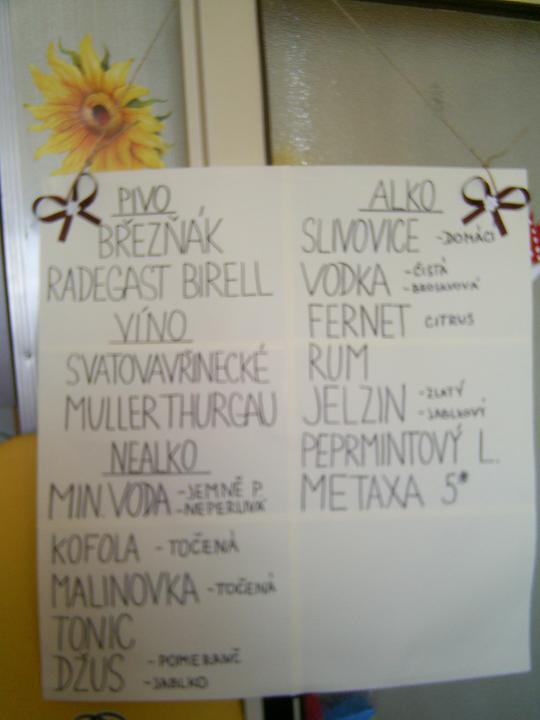 PIVO
BŘEZŇÁK
RADEGAST BIRELL
VÍNO
SVATOVAVŘINECKÉ
MULLER THURGAU
NEALKO
MIN. VODA -JEMNĚ P.
-NEPERLIVÁ
KOFOLA - TOČENÁ
MALINOVKA - TOČENÁ
TONIC
DŽUS - POMERANČ
- JABLKO
ALKO
SLIVOVICE - DOMÁCÍ
VODKA - ČISTÁ
- BROSKVOVÁ
FERNET CITRUS
RUM
JELZIN - ZLATÝ
- JABLKOVÝ
PEPRMINTOVÝ L.
METAXA 5*